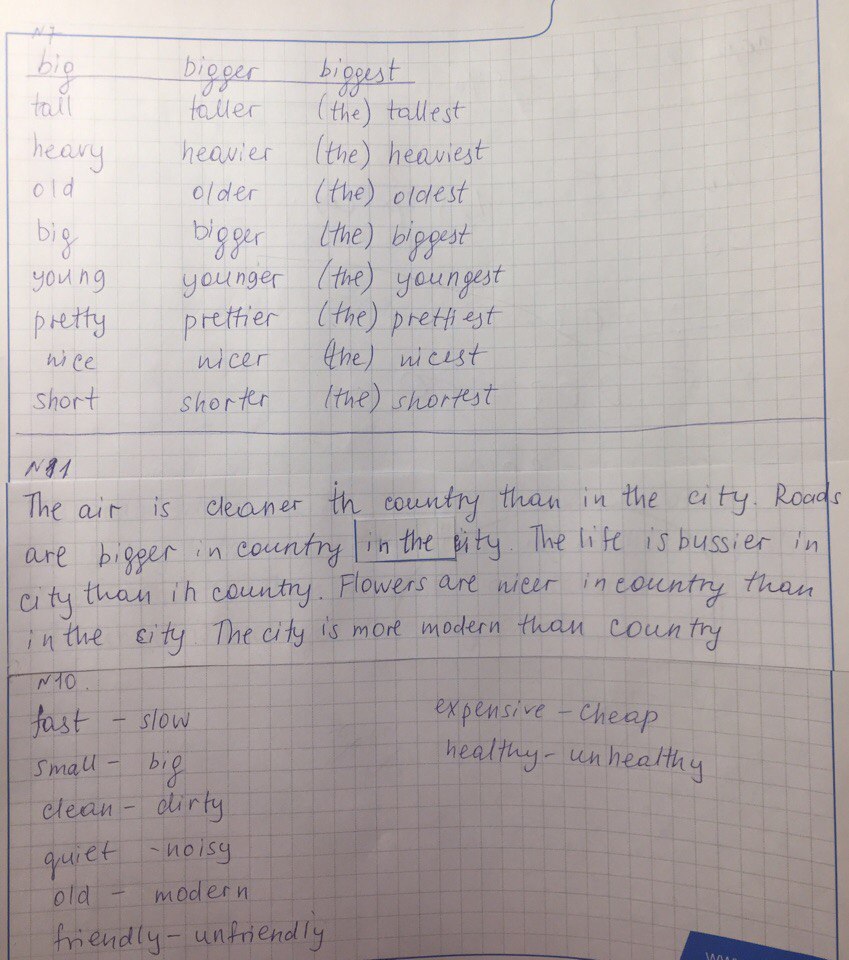 N7
big bigger biggest
tall taller (the) tallest
heavy heavier (the) heaviest
old older (the) oldest
big bigger (the) biggest
young younger (the) youngest
pretty prettier (the) prettiest
nice nicer (the) nicest
short shorter (the) shortest
N11
The air is cleaner in country than in the city. Roads
are bigger in country in the city. The life is bussier in
city than in country. Flowers are nicer in country than
in the city. The city is more modern than country
N10.
fast - slow expensive - cheap
small - big healthy - unhealthy
clean - dirty
quiet - noisy
old - modern
friendly - unfriendly
www